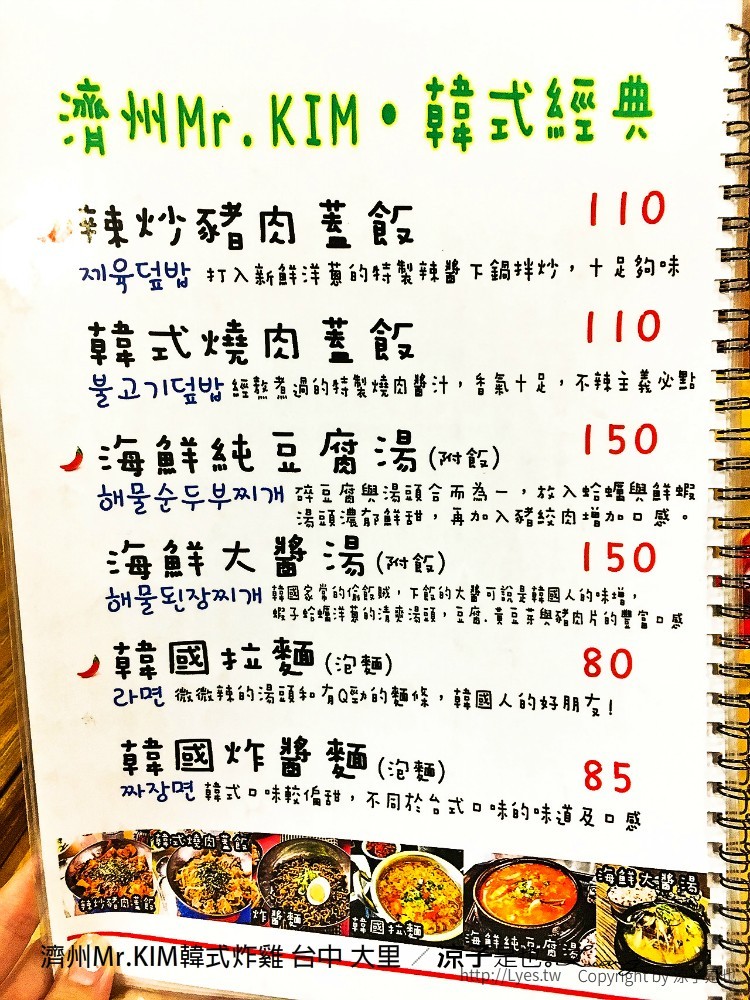 濟州Mr.KIM•韓式經典
辣炒豬肉蓋飯 110
제육덮밥 打入新鮮洋蔥的特製辣醬下鍋拌炒，十足夠味
韓式燒肉蓋飯 110
불고기덮밥 經熬煮過的特製燒肉醬汁，香氣十足，不辣主義必點
海鮮純豆腐湯(附飯) 150
해물순두부찌개 碎豆腐與湯頭合而為一，放入蛤蠣與鮮蝦
湯頭濃郁鮮甜，再加入豬絞肉增加口感。
海鮮大醬湯(附飯) 150
해물된장찌개 韓國家常的偷飯賊，下飯的大醬可說是韓國人的味增，
蝦子蛤蠣洋蔥的清爽湯頭，豆腐.黃豆芽與豬肉片的豐富口感
韓國拉麵(泡麵) 80
라면 微微辣的湯頭和有Q勁的麵條，韓國人的好朋友!
韓國炸醬麵(泡麵) 85
짜장면 韓式口味較偏甜，不同於台式口味的味道及口感
韓式燒肉蓋飯
海鮮大醬湯
辣炒豬肉蓋飯
炸醬麵
韓國拉麵
海鮮純豆腐湯
濟州Mr.KIM韓式炸雞 台中 大里 ／涼子是也。
http://Lyes.tw Copyright by 涼子是也